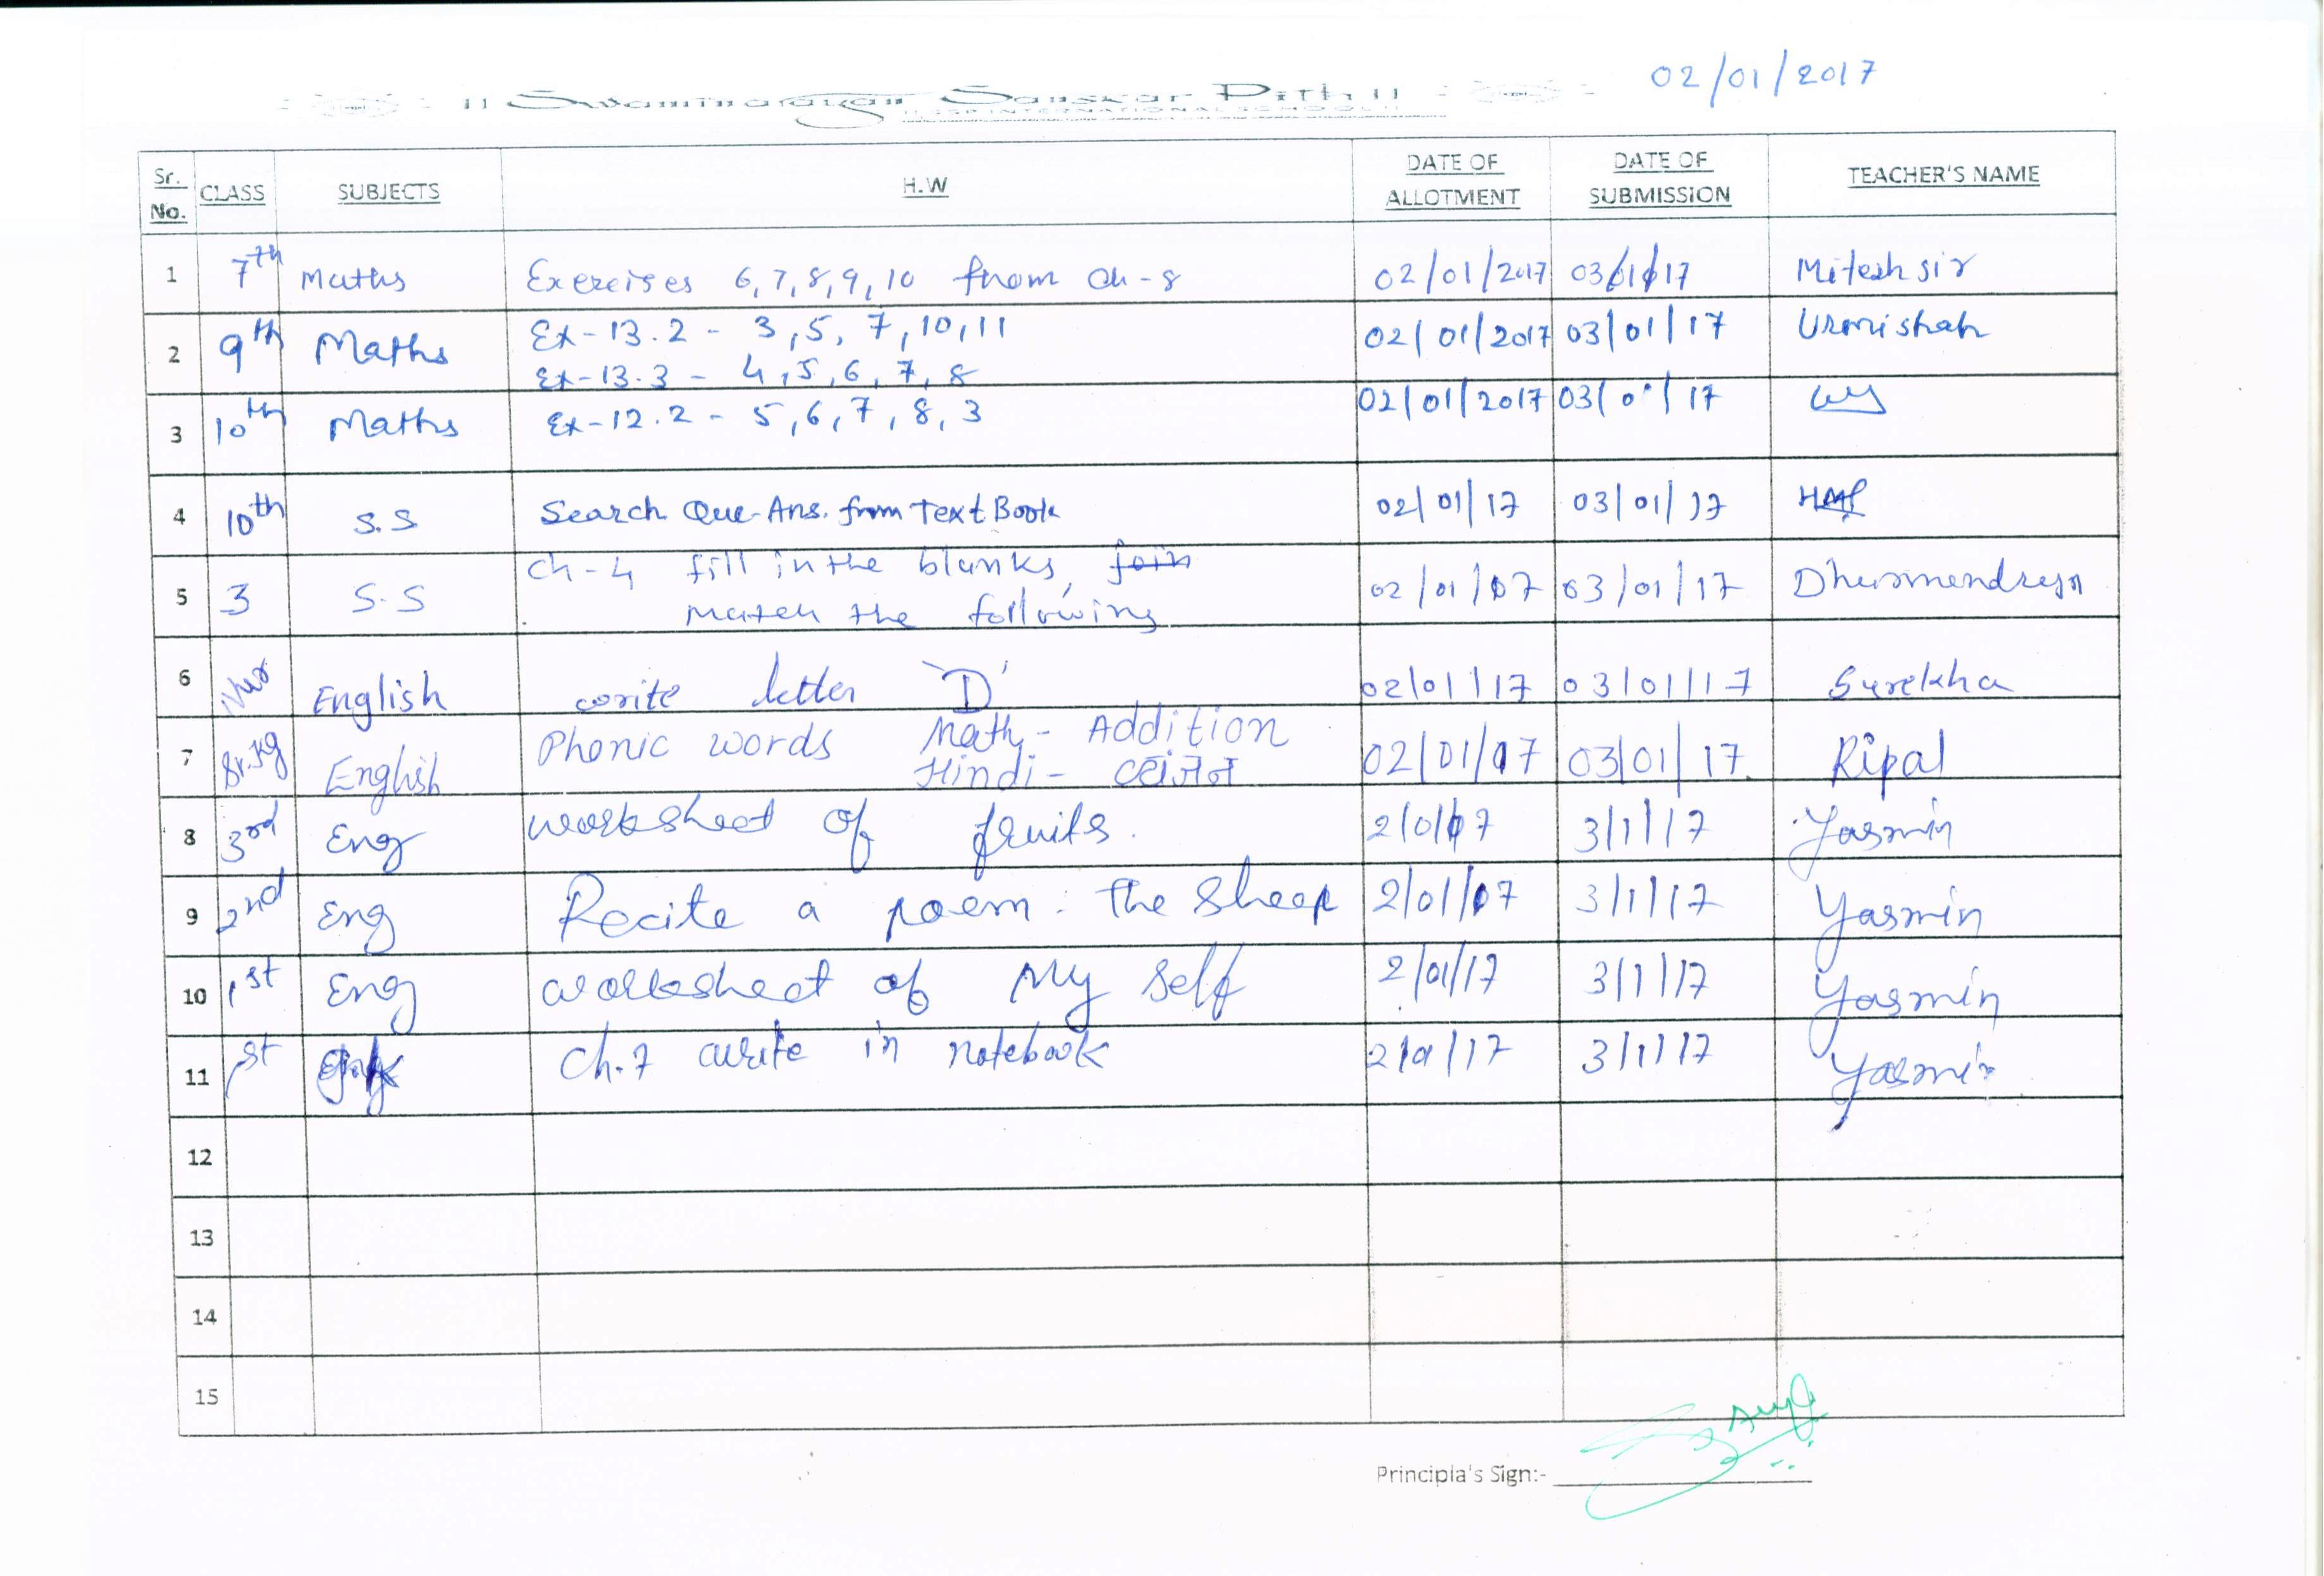 02/01/2017
|| Swaminarayan Sanskar Pith ||
Sr. No. CLASS SUBJECTS H.W DATE OF ALLOTMENT DATE OF SUBMISSION TEACHER'S NAME
1 7th Maths Exercises 6, 7, 8, 9, 10 from Ch-8 02/01/2017 03/1/17 Mitesh sir
2 9th Maths Ex-13.2 - 3, 5, 7, 10, 11 02/01/2017 03/01/17 Urmishah
Ex-13.3 - 4, 5, 6, 7, 8
3 10th Maths Ex-12.2 - 5, 6, 7, 8, 3 02/01/2017 03/01/17
4 10th S.S Search Que-Ans. from Text Book 02/01/17 03/01/17
5 3 S.S Ch-4 fill in the blanks, join 02/01/17 03/01/17
match the following
6 English write letter 'D' 02/01/17 03/01/17 Surekha
7 Sr.kg English Phonic words Math - Addition 02/01/17 03/01/17 Ripal
Hindi -
8 3rd Eng worksheet of fruits. 2/0/17 3/1/17 Yasmin
9 2nd Eng Recite a poem. the Sheep 2/01/17 3/1/17 Yasmin
10 1st Eng worksheet of My Self 2/01/17 3/1/17 Yasmin
11 1st Ch.7 write in notebook 2/01/17 3/1/17 Yasmin
12
13
14
15
Principla's Sign:-